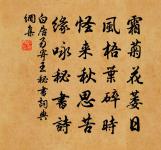 霜菊花萎日
風梧葉碎時
怪来秋思苦
緣咏秘書詩
白居易寄王秘書词典
網集